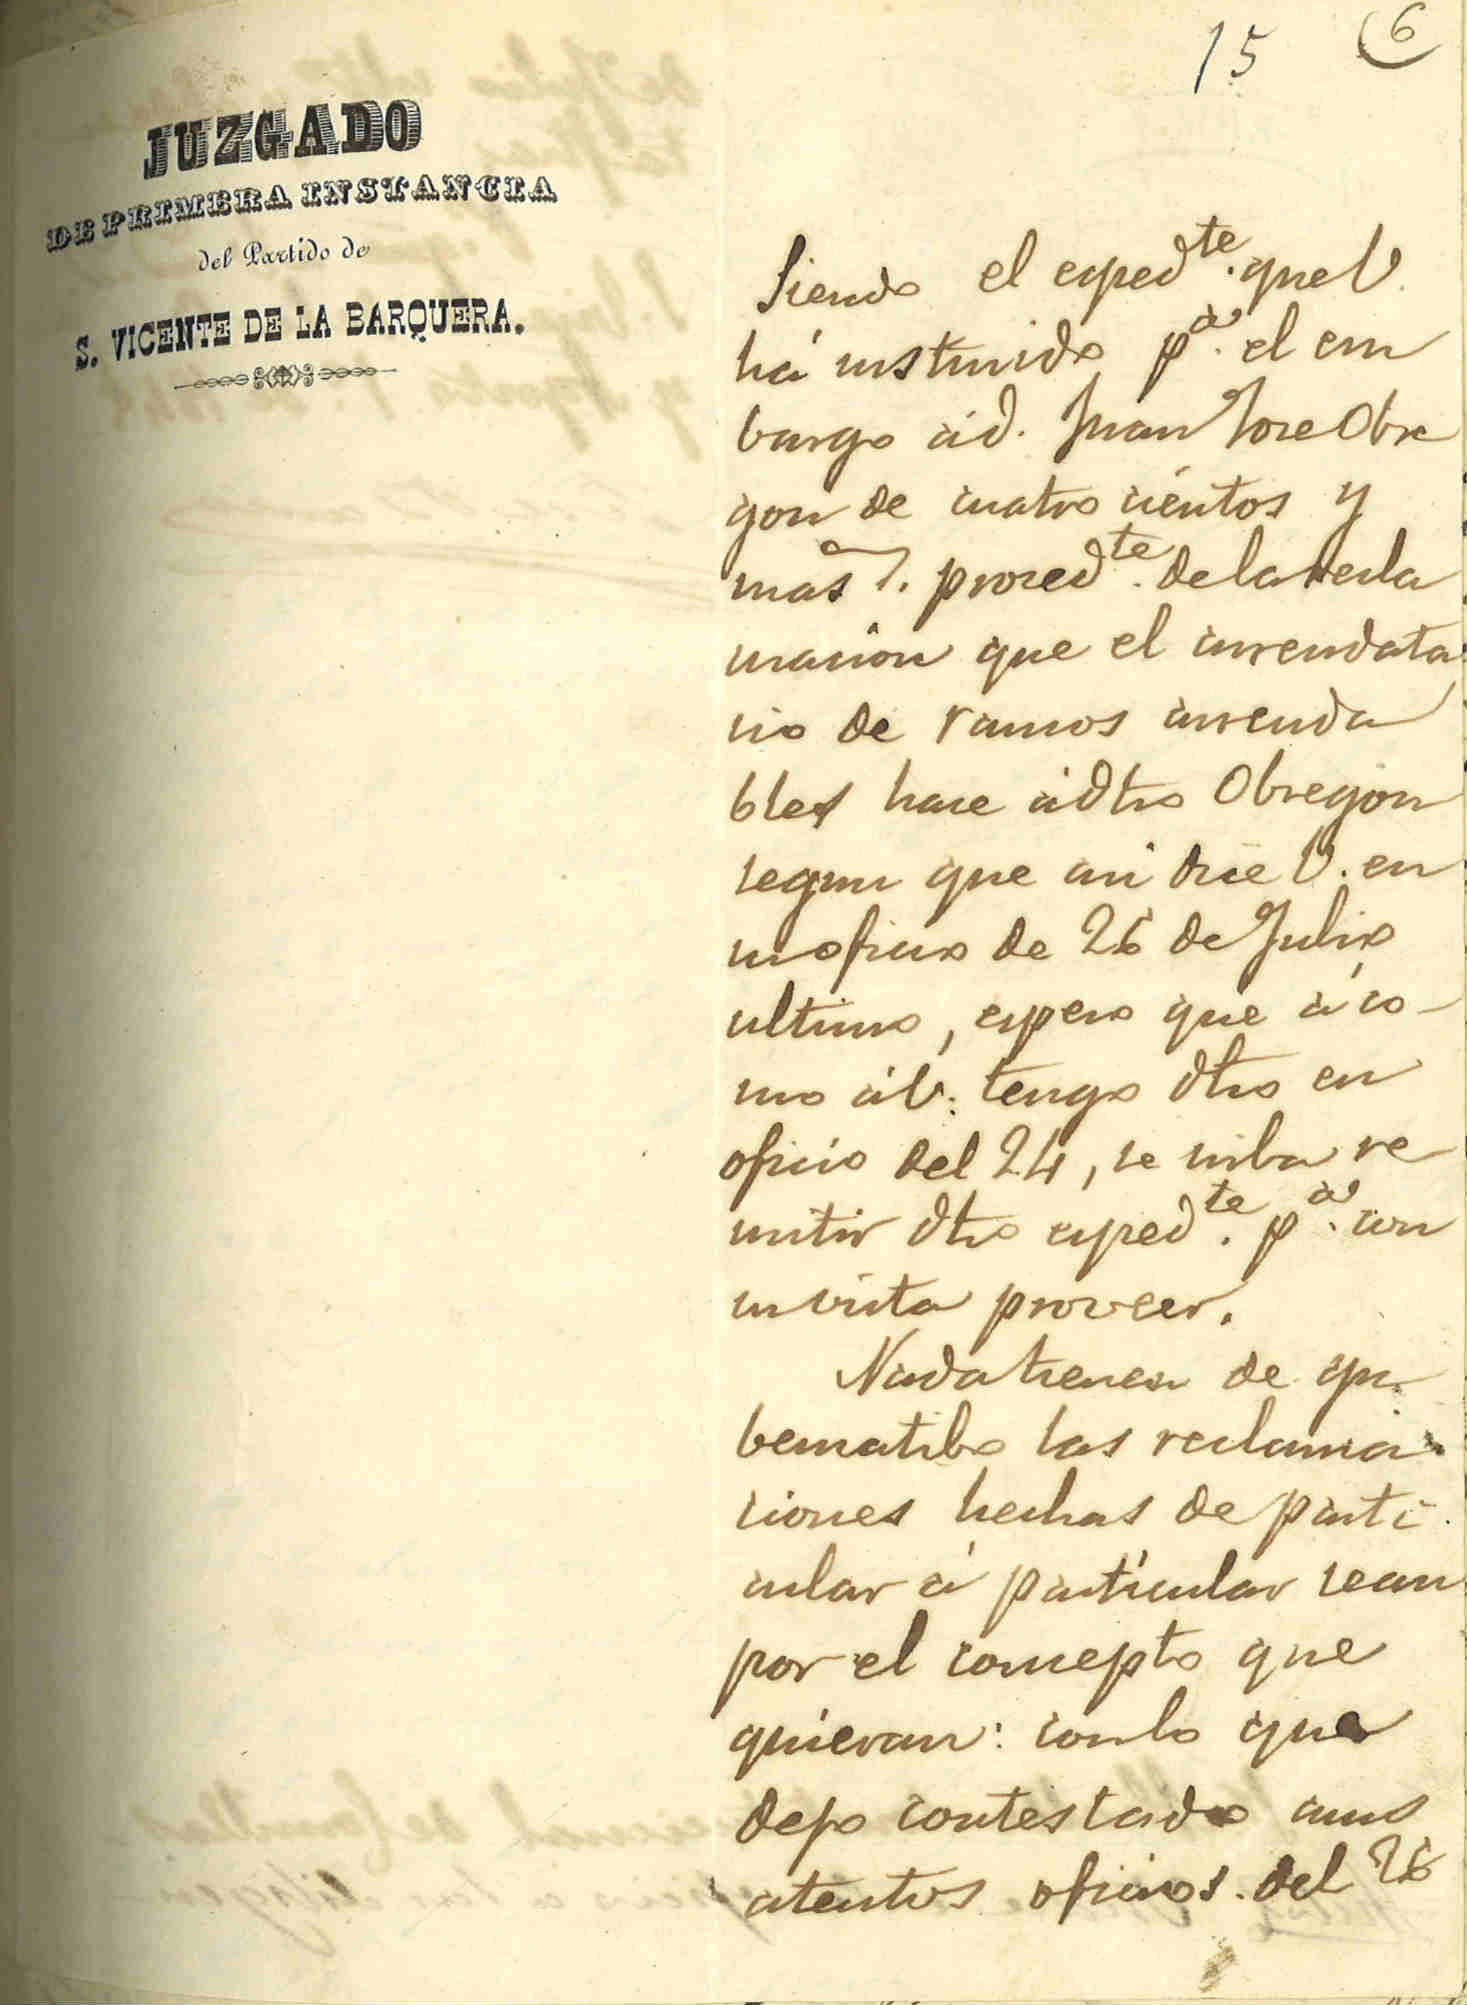 15 6
JUZGADO
DE PRIMERA INSTANCIA
del Partido de
S. VICENTE DE LA BARQUERA.
Siendo el esped.te que V.
há instruido p.a el em
bargo á d. Juan Jose Obre
gon de cuatro cientos y
mas r.s proced.te de la recla
macion que el arrendata
rio de ramos arrenda
bles hace á dho Obregon
segun que asi dice V. en
su oficio de 26 de Julio
ultimo, espero que á co-
mo á V. tengo dho en
oficio del 24, se sirba re
mitir dho esped.te p.a con
su vista proveer.
Nada tienen de gu
bernatibo las reclama
ciones hechas de parti
cular á particular sean
por el concepto que
quieran: con lo que
dejo contestado a sus
atentos oficios del 26